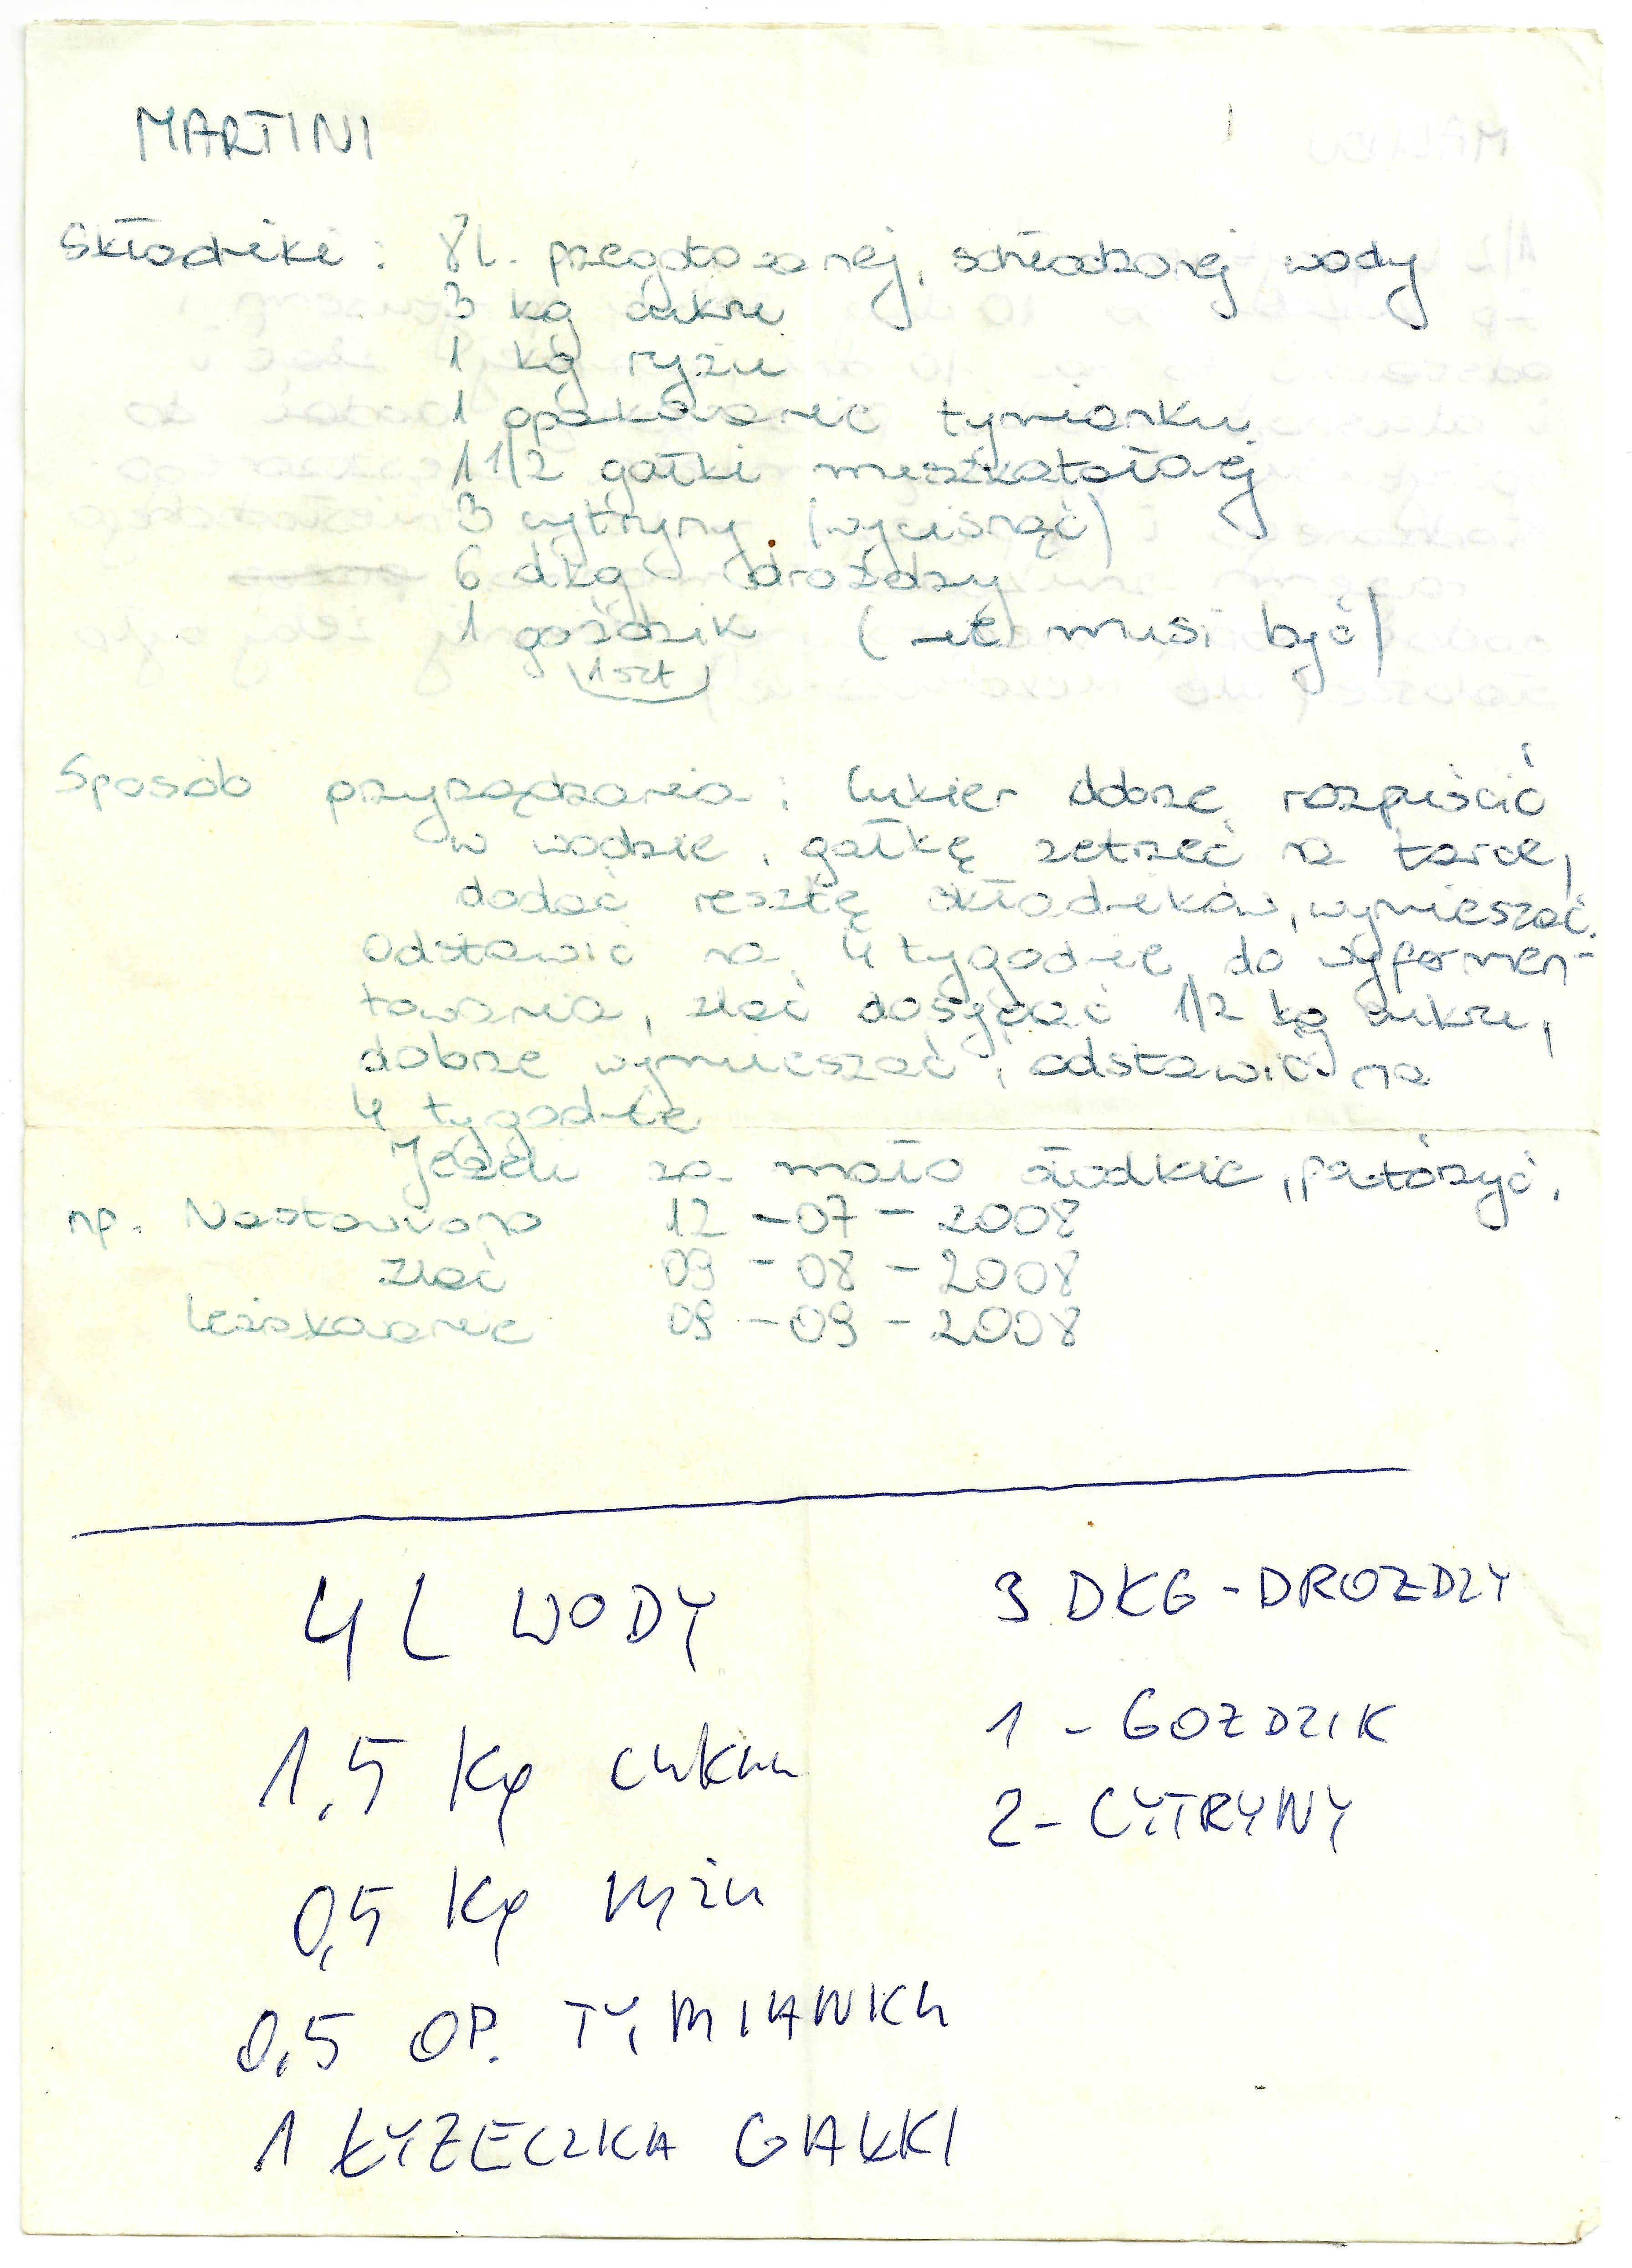 MARTINI
Składniki: 8 l. przegotowanej, schłodzonej wody
3 kg cukru
1 kg ryżu
1 opakowanie tymianku
1 1/2 gałki muszkatołowej
3 cytryny (wycisnąć)
6 dkg drożdży
1 goździk (nie musi być)
1 szt
Sposób przyrządzania: Cukier dobrze rozpuścić
w wodzie, gałkę zetrzeć na tarce,
dodać resztę składników, wymieszać.
Odstawić na 4 tygodnie do wyfermen-
towania, zlać dosypać 1/2 kg cukru,
dobrze wymieszać, odstawić na
4 tygodnie
Jeżeli za mało słodkie, powtórzyć.
np. Nastawiono 12-07-2008
Zlać 09-08-2008
Leżakowanie 09-09-2008
4 L WODY
1,5 Kg cukru
0,5 Kg ryżu
0,5 OP. TYMIANKU
1 ŁYŻECZKA GAŁKI
3 DKG - DROZDZY
1 - GOZDZIK
2 - CYTRYNY